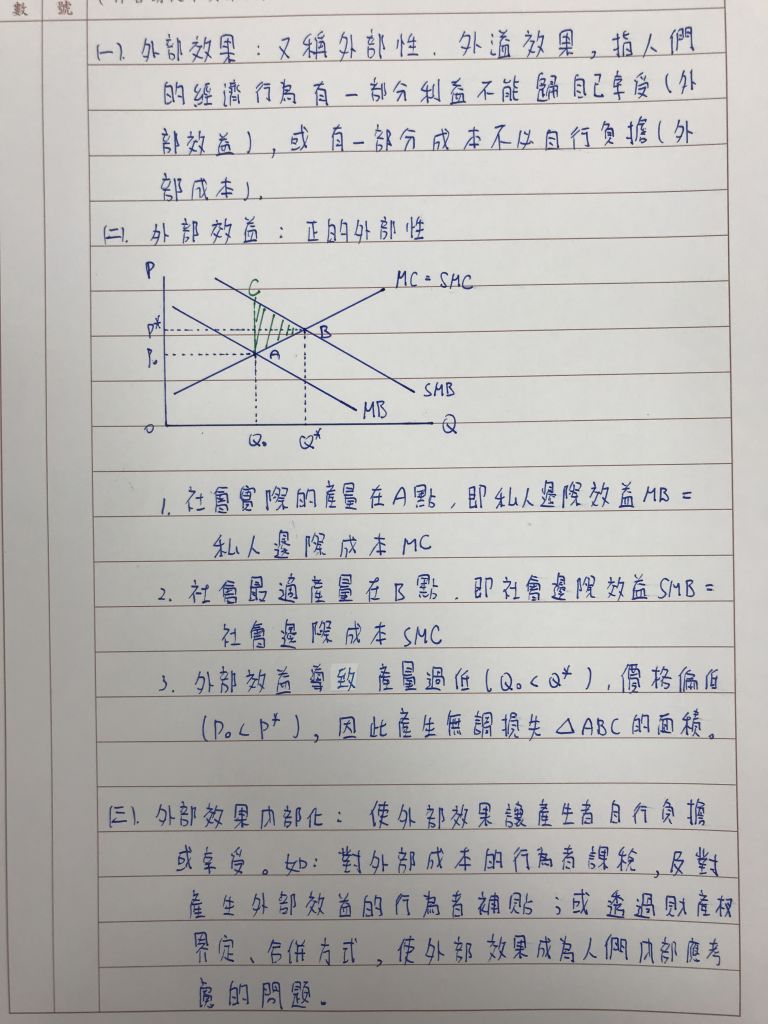 數 號
(一). 外部效果：又稱外部性．外溢效果，指人們
的經濟行為有一部分利益不能歸自己享受(外
部效益)，或有一部分成本不必自行負擔(外
部成本)．
(二). 外部效益：正的外部性
P
C
MC = SMC
P*
B
P₀
A
SMB
MB
0
Q₀
Q*
Q
1. 社會實際的產量在A點，即私人邊際效益MB =
私人邊際成本MC
2. 社會最適產量在B點．即社會邊際效益SMB =
社會邊際成本SMC
3. 外部效益導致產量過低(Q₀ < Q*)，價格偏低
(P₀ < P*)，因此產生無謂損失△ABC的面積。
(三). 外部效果內部化：使外部效果讓產生者自行負擔
或享受。如：對外部成本的行為者課稅，及對
產生外部效益的行為者補貼；或透過財產權
界定、合併方式，使外部效果成為人們內部應考
慮的問題。